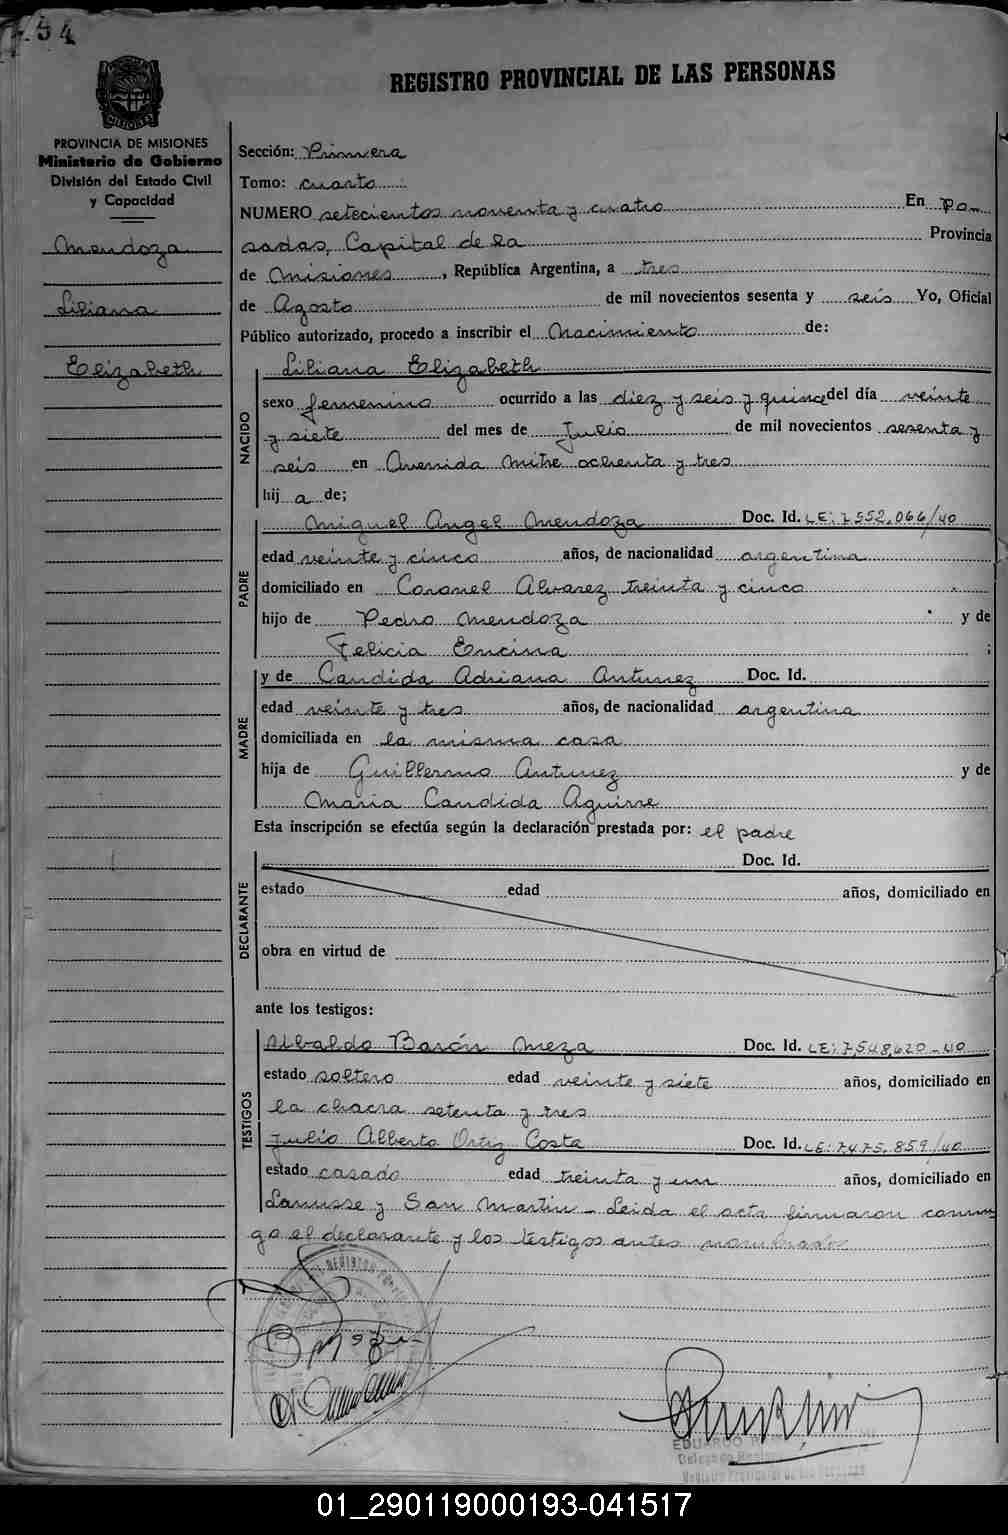 54
REGISTRO PROVINCIAL DE LAS PERSONAS
MISIONES
PROVINCIA DE MISIONES
Ministerio de Gobierno
División del Estado Civil
y Capacidad
Mendoza
Liliana
Elizabeth
Sección: Primera
Tomo: cuarto
NUMERO setecientos noventa y cuatro En Po-
sadas, Capital de la Provincia
de Misiones, República Argentina, a tres
de Agosto de mil novecientos sesenta y seis Yo, Oficial
Público autorizado, procedo a inscribir el Nacimiento de:
NACIDO
Liliana Elizabeth
sexo femenino ocurrido a las diez y seis y quince del día veinte
y siete del mes de Julio de mil novecientos sesenta y
seis en Avenida Mitre ochenta y tres
hij a de;
PADRE
Miguel Angel Mendoza Doc. Id. LE: 7552.066/40
edad veinte y cinco años, de nacionalidad argentina
domiciliado en Coronel Alvarez treinta y cinco
hijo de Pedro Mendoza y de
Felicia Encina ;
MADRE
y de Candida Adriana Antunez Doc. Id.
edad veinte y tres años, de nacionalidad argentina
domiciliada en la misma casa
hija de Guillermo Antunez y de
Maria Candida Aguirre
Esta inscripción se efectúa según la declaración prestada por: el padre
DECLARANTE
Doc. Id.
estado edad años, domiciliado en
obra en virtud de
ante los testigos:
TESTIGOS
Ubaldo Barón Meza Doc. Id. LE: 7,548,620-40
estado soltero edad veinte y siete años, domiciliado en
la chacra setenta y tres
Julio Alberto Ortiz Costa Doc. Id. LE: 7,475.859/40
estado casado edad treinta y un años, domiciliado en
Lanusse y San Martin - Leida el acta firmaron conmi-
go el declarante y los testigos antes nombrados
EDUARDO
Delegado
Registro Provincial de las Personas
01_290119000193-041517